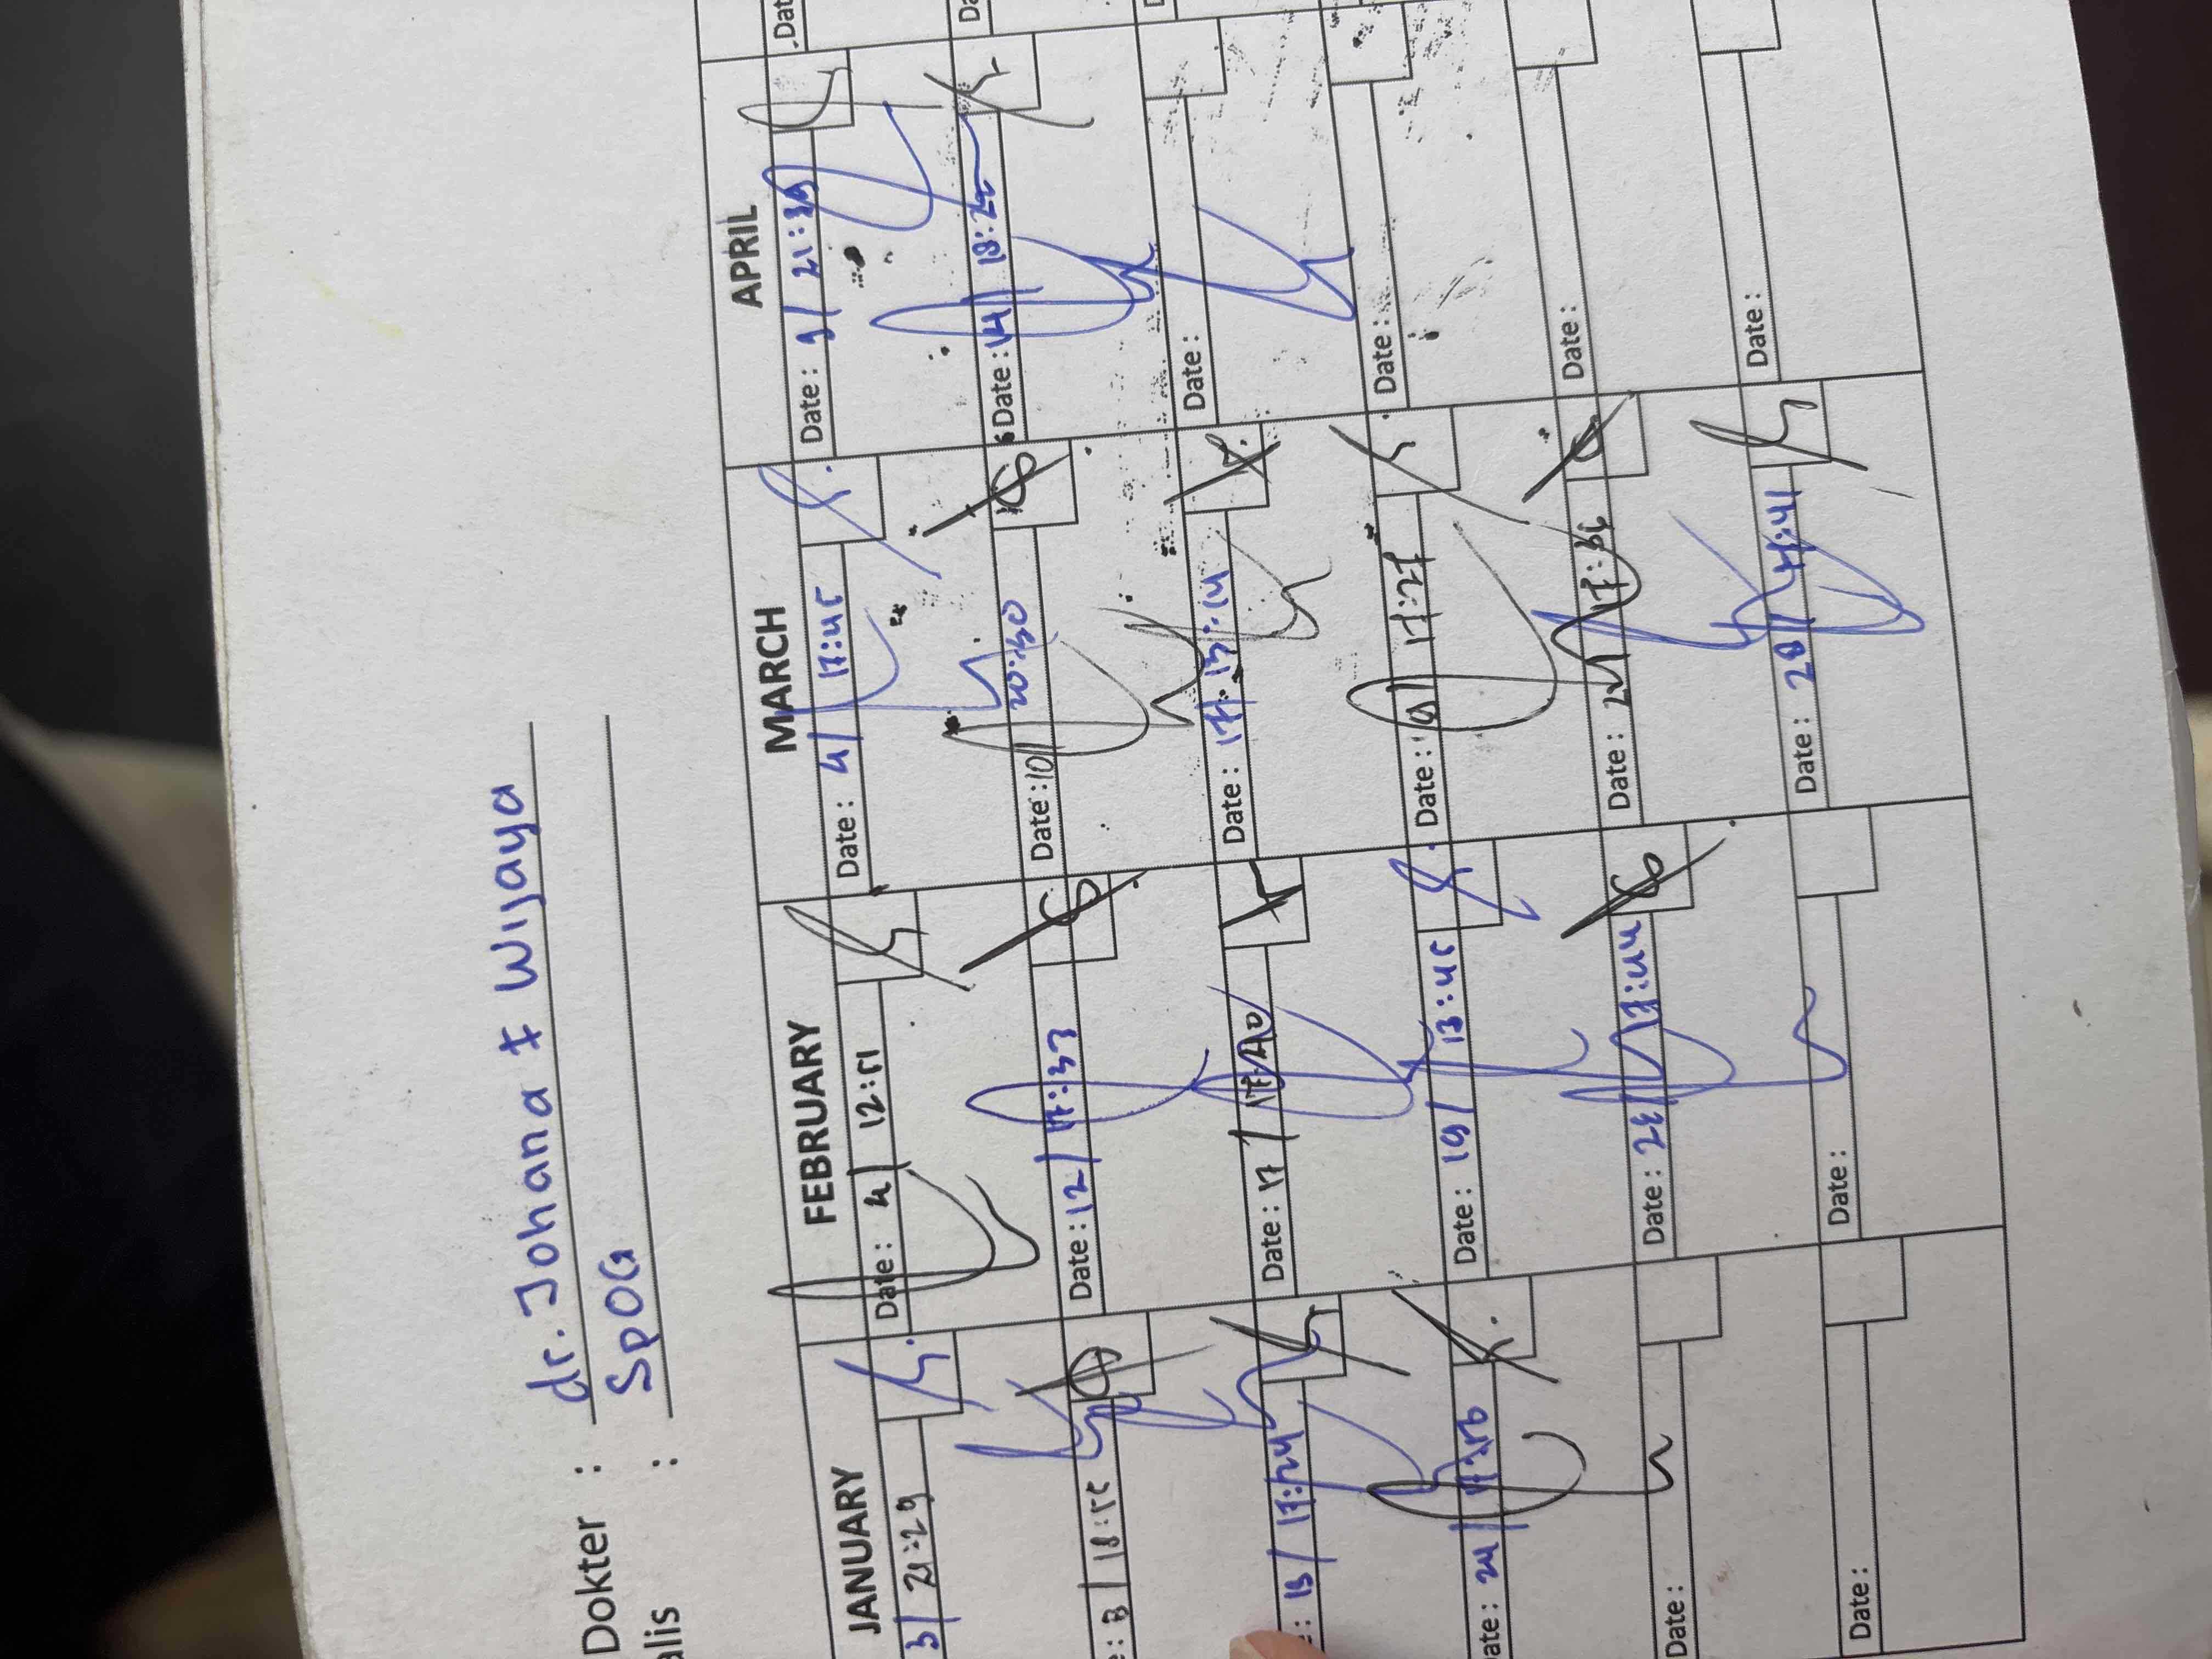 Dokter : dr. Johana F Wijaya
alis : SpOG
JANUARY FEBRUARY MARCH APRIL
3/ 21:29 Date : 4/ 12:51 Date : 4/ 17:45 Date : 9/ 21:39 Dat
: 8/ 18:55 Date : 12/ 17:37 Date : 10/ 20:30 Date : 14/ 18:22
: 13/ 17:24 Date : 17/ Date : 13:14 Date :
ate : 24/ Date : 19/ 13:45 Date : 19/ 17:27 Date :
Date : Date : Date : Date :
Date : Date : Date : 28/ 17:41 Date :